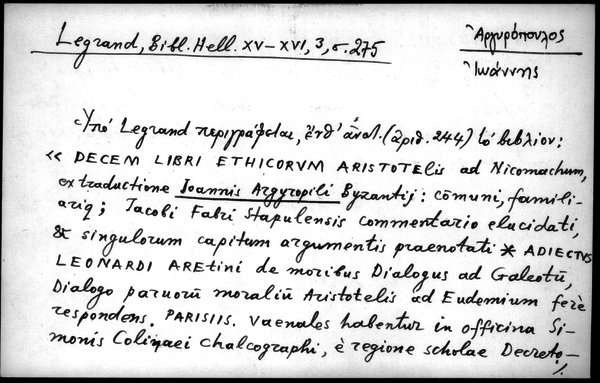 Legrand, Bibl. Hell. XV–XVI, 3, σ. 275
Ἀργυρόπουλος
Ἰωάννης
Ὑπό Legrand περιγράφεται, ἐνθ' ἀνωτ. (ἀριθ. 244) τό βιβλίον:
« DECEM LIBRI ETHICORVM ARISTOTElis ad Nicomachum,
ex traductione Ioannis Argyropili Byzantij: cōmuni, famili-
ariq; Jacobi Fabri Stapulensis commentario elucidati,
& singulorum capitum argumentis praenotati * ADIECTVS
LEONARDI AREtini de moribus Dialogus ad Galeotū,
Dialogo paruorū moraliū Aristotelis ad Eudemium ferè
respondens. PARISIIS. Vaenales habentur in officina Si-
monis Colinaei chalcographi, è regione scholae Decreto-
/.